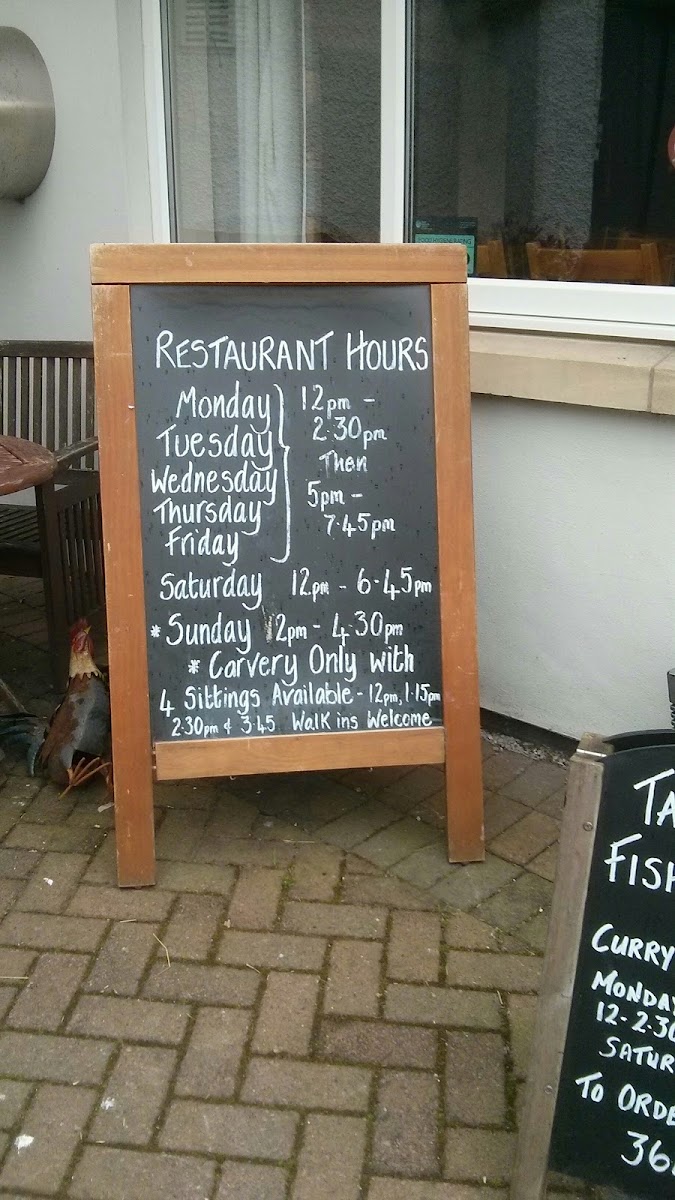 RESTAURANT HOURS
Monday 12pm -
Tuesday 2.30pm
Wednesday Then
Thursday 5pm -
Friday 7.45pm
Saturday 12pm - 6-45pm
* Sunday 12pm - 4.30pm
* Carvery Only with
4 Sittings Available - 12pm, 1.15pm
2.30pm & 3.45 Walk ins Welcome
TA
FISH
CURRY
MONDAY
12-2.30
SATUR
TO ORDE
36